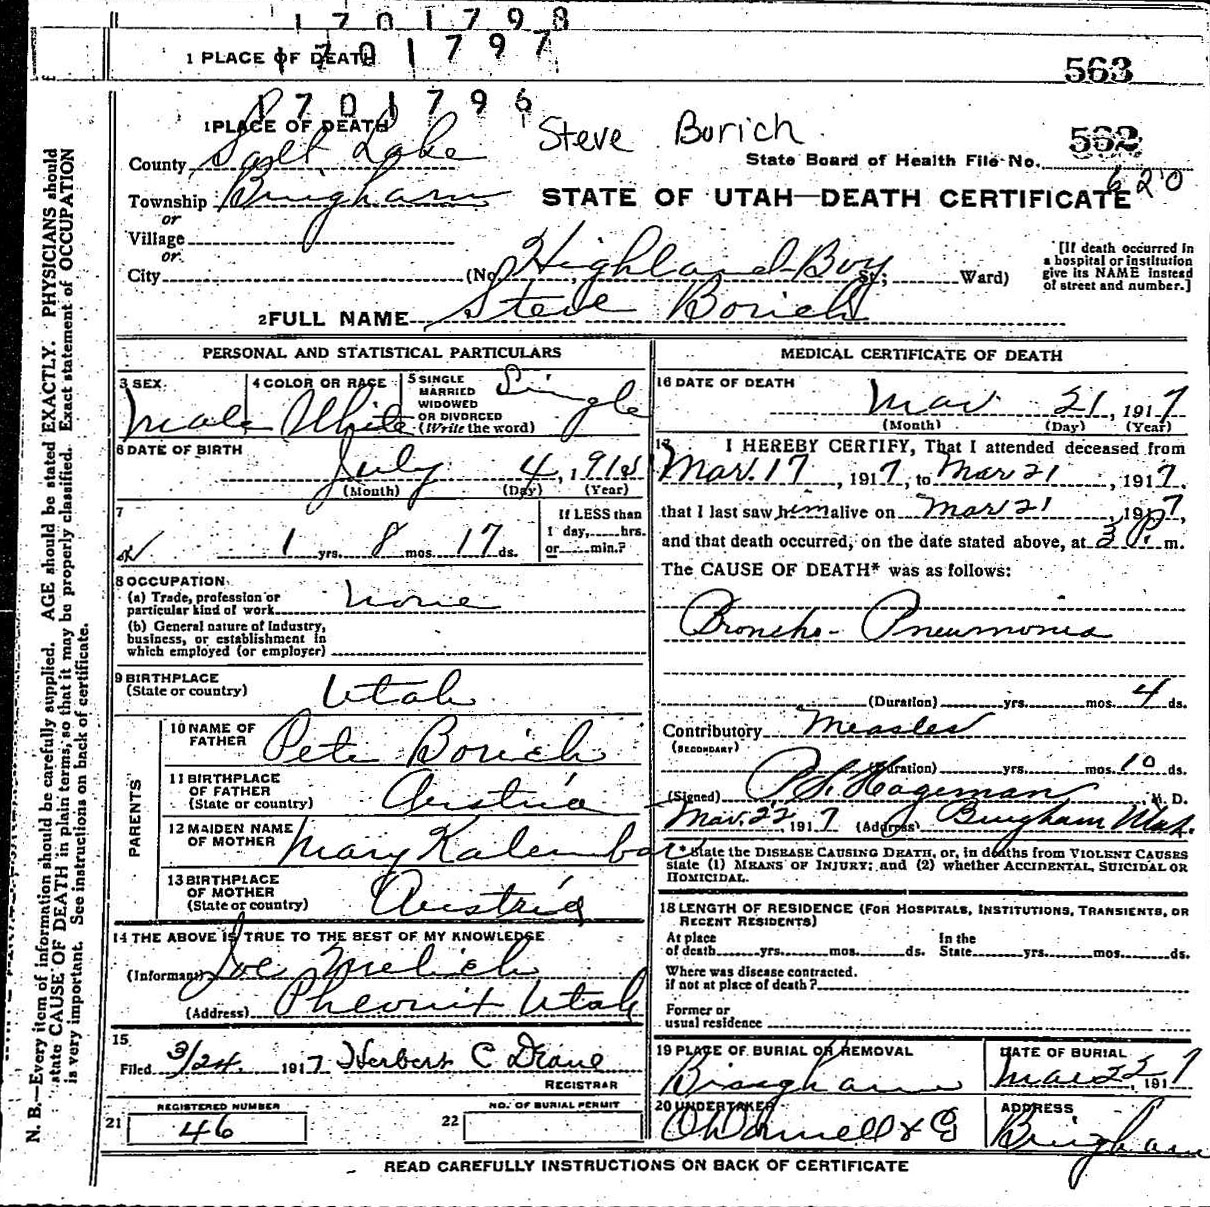 1701798
1 PLACE OF DEATH 1701797
563
1701796
1 PLACE OF DEATH
Steve Borich
562
County Salt Lake
State Board of Health File No. 620
Township Bingham
STATE OF UTAH—DEATH CERTIFICATE
or
Village
or
City (No. Highland Boy St; Ward)
[If death occurred in
a hospital or institution
give its NAME instead
of street and number.]
2 FULL NAME Steve Borich
PERSONAL AND STATISTICAL PARTICULARS
3 SEX Male
4 COLOR OR RACE White
5 SINGLE
MARRIED
WIDOWED
OR DIVORCED
(Write the word)
Single
6 DATE OF BIRTH
July 4, 1915
(Month) (Day) (Year)
7
1 yrs. 8 mos. 17 ds.
If LESS than
1 day, hrs.
or min.?
8 OCCUPATION
(a) Trade, profession or
particular kind of work none
(b) General nature of Industry,
business, or establishment in
which employed (or employer)
9 BIRTHPLACE
(State or country) Utah
PARENTS
10 NAME OF
FATHER Pete Borich
11 BIRTHPLACE
OF FATHER
(State or country) Austria
12 MAIDEN NAME
OF MOTHER Mary Kalembar
13 BIRTHPLACE
OF MOTHER
(State or country) Austria
14 THE ABOVE IS TRUE TO THE BEST OF MY KNOWLEDGE
(Informant) Joe Melich
(Address) Pheonix Utah
15
Filed 3/24 1917 Herbert C Deane
REGISTRAR
21 REGISTERED NUMBER
46
22 NO. OF BURIAL PERMIT
MEDICAL CERTIFICATE OF DEATH
16 DATE OF DEATH
Mar 21, 1917
(Month) (Day) (Year)
17 I HEREBY CERTIFY, That I attended deceased from
Mar. 17, 1917, to Mar 21, 1917,
that I last saw him alive on Mar 21, 1917,
and that death occurred, on the date stated above, at 3 P. m.
The CAUSE OF DEATH* was as follows:
Broncho-Pneumonia
(Duration) yrs. mos. 4 ds.
Contributory Measles
(SECONDARY)
(Duration) yrs. mos. 10 ds.
(Signed) Hageman M. D.
Mar. 22, 1917 (Address) Bingham Utah.
* State the DISEASE CAUSING DEATH, or, in deaths from VIOLENT CAUSES
state (1) MEANS OF INJURY; and (2) whether ACCIDENTAL, SUICIDAL OR
HOMICIDAL.
18 LENGTH OF RESIDENCE (FOR HOSPITALS, INSTITUTIONS, TRANSIENTS, OR
RECENT RESIDENTS)
At place
of death yrs. mos. ds.
In the
State yrs. mos. ds.
Where was disease contracted.
if not at place of death?
Former or
usual residence
19 PLACE OF BURIAL OR REMOVAL
Bingham
DATE OF BURIAL
Mar 22, 1917
20 UNDERTAKER
O'Donnell & Co
ADDRESS
Bingham
READ CAREFULLY INSTRUCTIONS ON BACK OF CERTIFICATE
N. B.—Every item of information should be carefully supplied. AGE should be stated EXACTLY. PHYSICIANS should
state CAUSE OF DEATH in plain terms, so that it may be properly classified. Exact statement of OCCUPATION
is very important. See instructions on back of certificate.